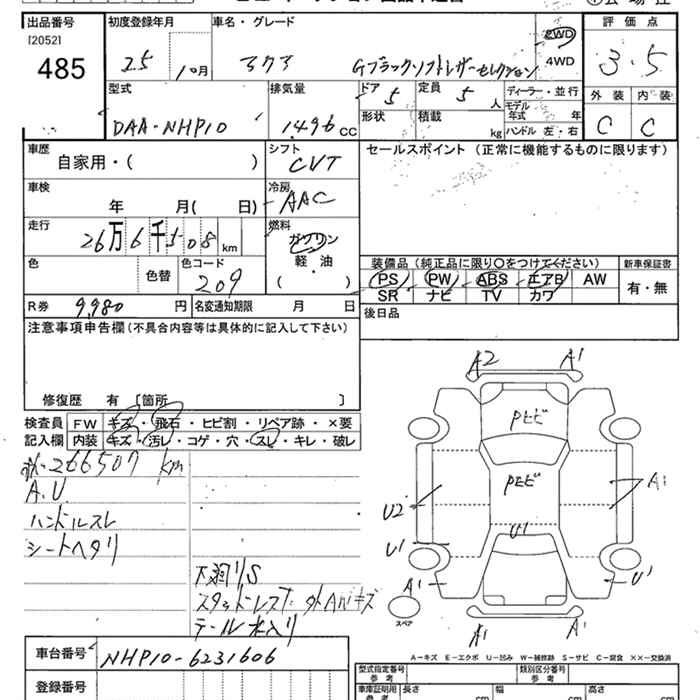 出品番号 初度登録年月 車名・グレード 評価点
[2052]
485 25 10月 アクア Gブラックソフトレザーセレクション 2WD 4WD 3.5
型式 排気量 ドア 5 定員 5 人 ディーラー・並行 外装 内装
DAA-NHP10 1496 CC 形状 積載 kg モデル年式 年 ハンドル 左・右 C C
車歴 シフト セールスポイント (正常に機能するものに限ります)
自家用・( ) CVT
車検 年 月( 日) 冷房 AAC
走行 26万6千508km 燃料 ガソリン
色 色替 色コード 209 軽・油 ( )
装備品 (純正品に限り〇をつけてください) 新車保証書
PS PW ABS エアB AW 有・無
SR ナビ TV カワ
R券 9,980 円 名変通知期限 月 日 後日品
注意事項申告欄 (不具合内容等は具体的に記入して下さい)
修復歴 有 [箇所 ]
検査員 FW キズ・飛石・ヒビ割・リペア跡・×要
記入欄 内装 キズ・汚レ・コゲ・穴・スレ・キレ・破レ
266507 km
A.U
ハンドルスレ
シートヘタリ
スタッドレス
テール水入り
A2 A1
Pヒビ
Pヒビ
A1
U2
U1
U1
A1 U1
A1 A1
スペア
A－キズ E－エクボ U－凹み W－補修跡 S－サビ C－腐食 ××－交換済
車台番号 NHP10-6231606
登録番号
型式指定番号 参考 類別区分番号 参考
車庫証明用 参考 長さ cm 幅 cm 高さ cm